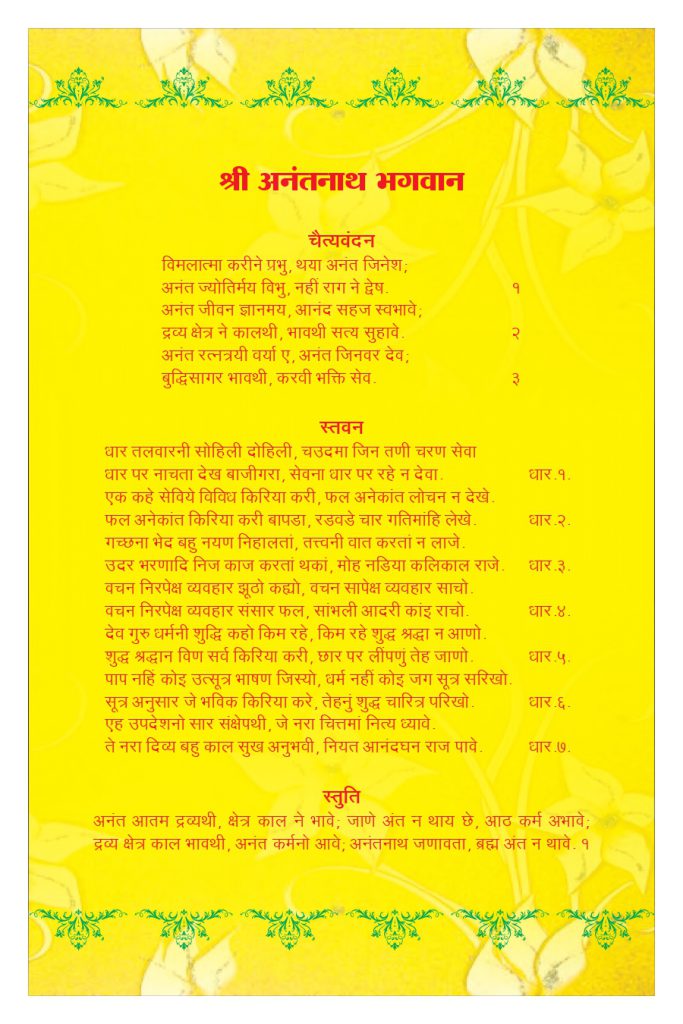 श्री अनंतनाथ भगवान
चैत्यवंदन
विमलात्मा करीने प्रभु, थया अनंत जिनेश;
अनंत ज्योतिर्मय विभु, नहीं राग ने द्वेष. १
अनंत जीवन ज्ञानमय, आनंद सहज स्वभावे;
द्रव्य क्षेत्र ने कालथी, भावथी सत्य सुहावे. २
अनंत रत्नत्रयी वर्या ए, अनंत जिनवर देव;
बुद्धिसागर भावथी, करवी भक्ति सेव. ३
स्तवन
धार तलवारनी सोहिली दोहिली, चउदमा जिन तणी चरण सेवा
धार पर नाचता देख बाजीगरा, सेवना धार पर रहे न देवा. धार.१.
एक कहे सेविये विविध किरिया करी, फल अनेकांत लोचन न देखे.
फल अनेकांत किरिया करी बापडा, रडवडे चार गतिमांहि लेखे. धार.२.
गच्छना भेद बहु नयण निहालतां, तत्त्वनी वात करतां न लाजे.
उदर भरणादि निज काज करतां थकां, मोह नडिया कलिकाल राजे. धार.३.
वचन निरपेक्ष व्यवहार झूठो कह्यो, वचन सापेक्ष व्यवहार साचो.
वचन निरपेक्ष व्यवहार संसार फल, सांभली आदरी कांइ राचो. धार.४.
देव गुरु धर्मनी शुद्धि कहो किम रहे, किम रहे शुद्ध श्रद्धा न आणो.
शुद्ध श्रद्धान विण सर्व किरिया करी, छार पर लींपणुं तेह जाणो. धार.५.
पाप नहिं कोइ उत्सूत्र भाषण जिस्यो, धर्म नहीं कोइ जग सूत्र सरिखो.
सूत्र अनुसार जे भविक किरिया करे, तेहनुं शुद्ध चारित्र परिखो. धार.६.
एह उपदेशनो सार संक्षेपथी, जे नरा चित्तमां नित्य ध्यावे.
ते नरा दिव्य बहु काल सुख अनुभवी, नियत आनंदघन राज पावे. धार.७.
स्तुति
अनंत आतम द्रव्यथी, क्षेत्र काल ने भावे; जाणे अंत न थाय छे, आठ कर्म अभावे;
द्रव्य क्षेत्र काल भावथी, अनंत कर्मनो आवे; अनंतनाथ जणावता, ब्रह्म अंत न थावे. १